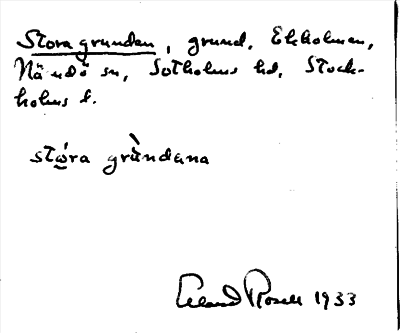 Storagrunden, grund, Ekholmen,
Nämdö sn, Sotholms hd, Stock-
holms l.
stó̤ra grùndana
Erland Rosell 1933